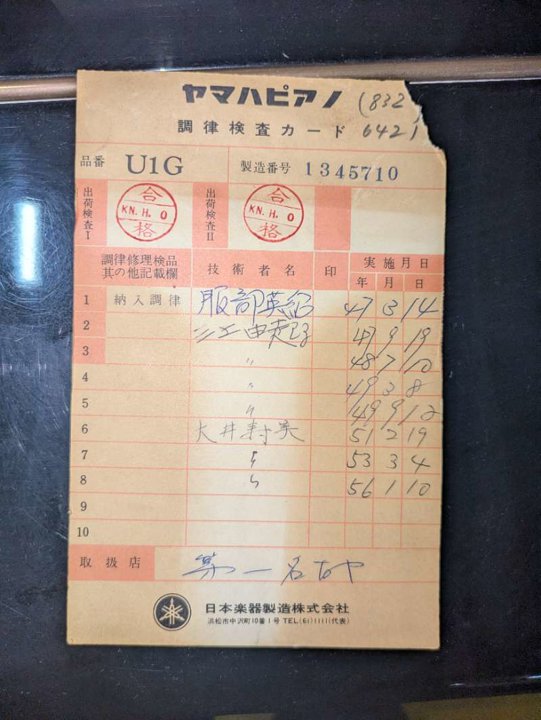 ヤマハピアノ
(832
調律検査カード 6421
品番 U1G 製造番号 1345710
出荷検査I 合格 KN.H.O 出荷検査II 合格 KN.H.O
調律修理検品 其の他記載欄 技術者名 印 実施月日 年 月 日
1 納入調律 服部英 47 3 14
2 47 9 19
3 〃 48 7 10
4 〃 49 3 8
5 〃 49 9 12
6 大井 51 2 19
7 〃 53 3 4
8 〃 56 1 10
9
10
取扱店 第一名古ヤ
日本楽器製造株式会社
浜松市中沢町10番1号 TEL(61)1111(代表)